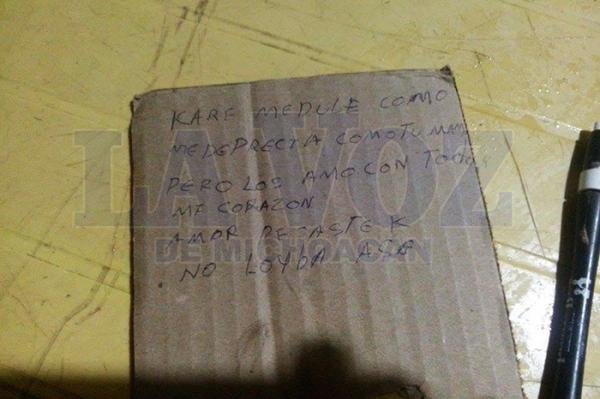 KARE MEDULE COMO
MEDEPRECIA COMOTU MAMA
PERO LOS AMO CON TODO
MI CORAZON
AMOR DEJASTE K
NO LOYDA ASA
LA VOZ
DE MICHOACÁN